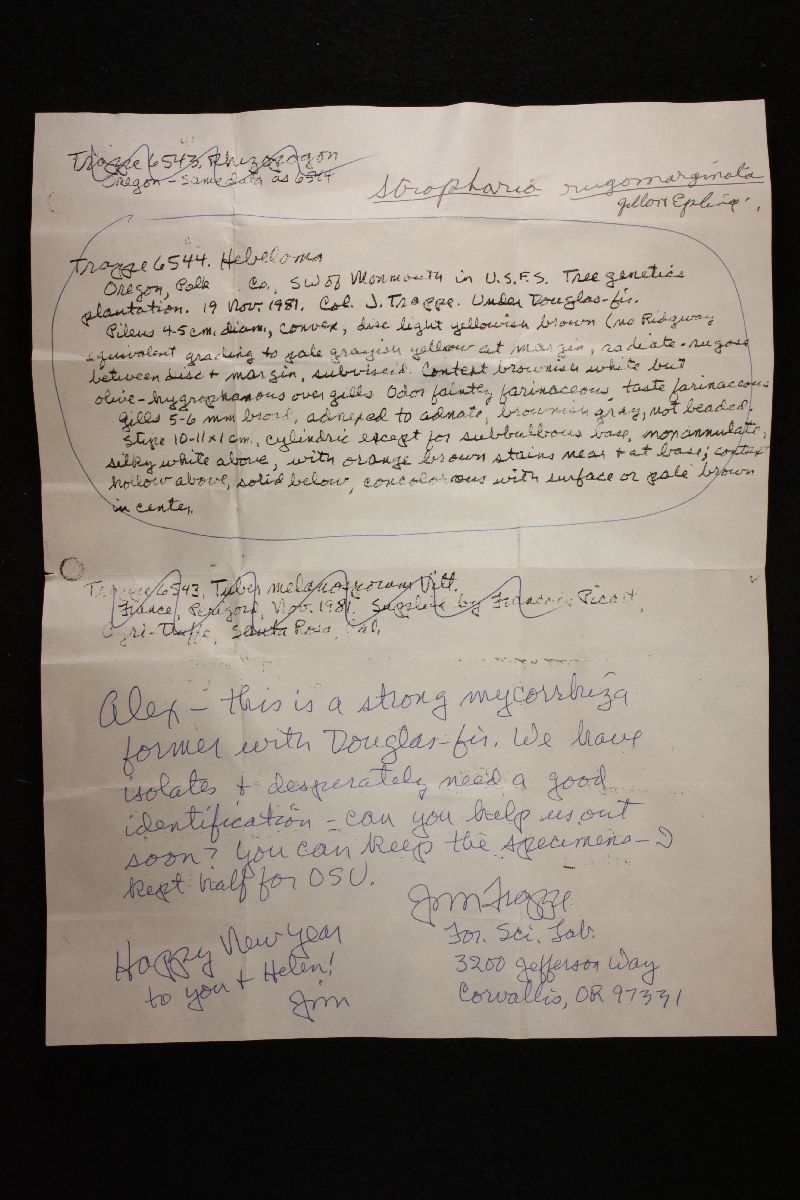 Trappe 6543. Rhizopogon
Oregon - Same data as 6544
Stropharia rugomarginata
Trappe 6544. Hebeloma
Oregon, Polk Co., SW of Monmouth in U.S.F.S. Tree genetics
plantation. 19 Nov. 1981. Col. J. Trappe. Under Douglas-fir.
Pileus 4-5 cm diam., convex, disc light yellowish brown (no Ridgway
equivalent grading to pale grayish yellow at margin, radiate-rugose
between disc + margin, subviscid. Context brownish white but
olive-hygrophanous over gills. Odor faintly farinaceous, taste farinaceous
Gills 5-6 mm broad, adnexed to adnate, brownish gray, not beaded.
Stipe 10-11x1 cm., cylindric except for subbulbous base, nonannulate,
silky white above, with orange brown stains near + at base; context
hollow above, solid below, concolorous with surface or pale brown
in center.
Trappe 6543. Tuber melanosporum Vitt.
France, Perigord, Nov. 1981. Supplied by Francois Picart,
Agri-Truffe, Santa Rosa, Cal.
Alex - this is a strong mycorrhiza
former with Douglas-fir. We have
isolates + desperately need a good
identification - can you help us out
soon? You can keep the specimens - I
kept half for OSU.
Jim Trappe
For. Sci. Lab.
3200 Jefferson Way
Corvallis, OR 97331
Happy New Year
to you + Helen!
Jim